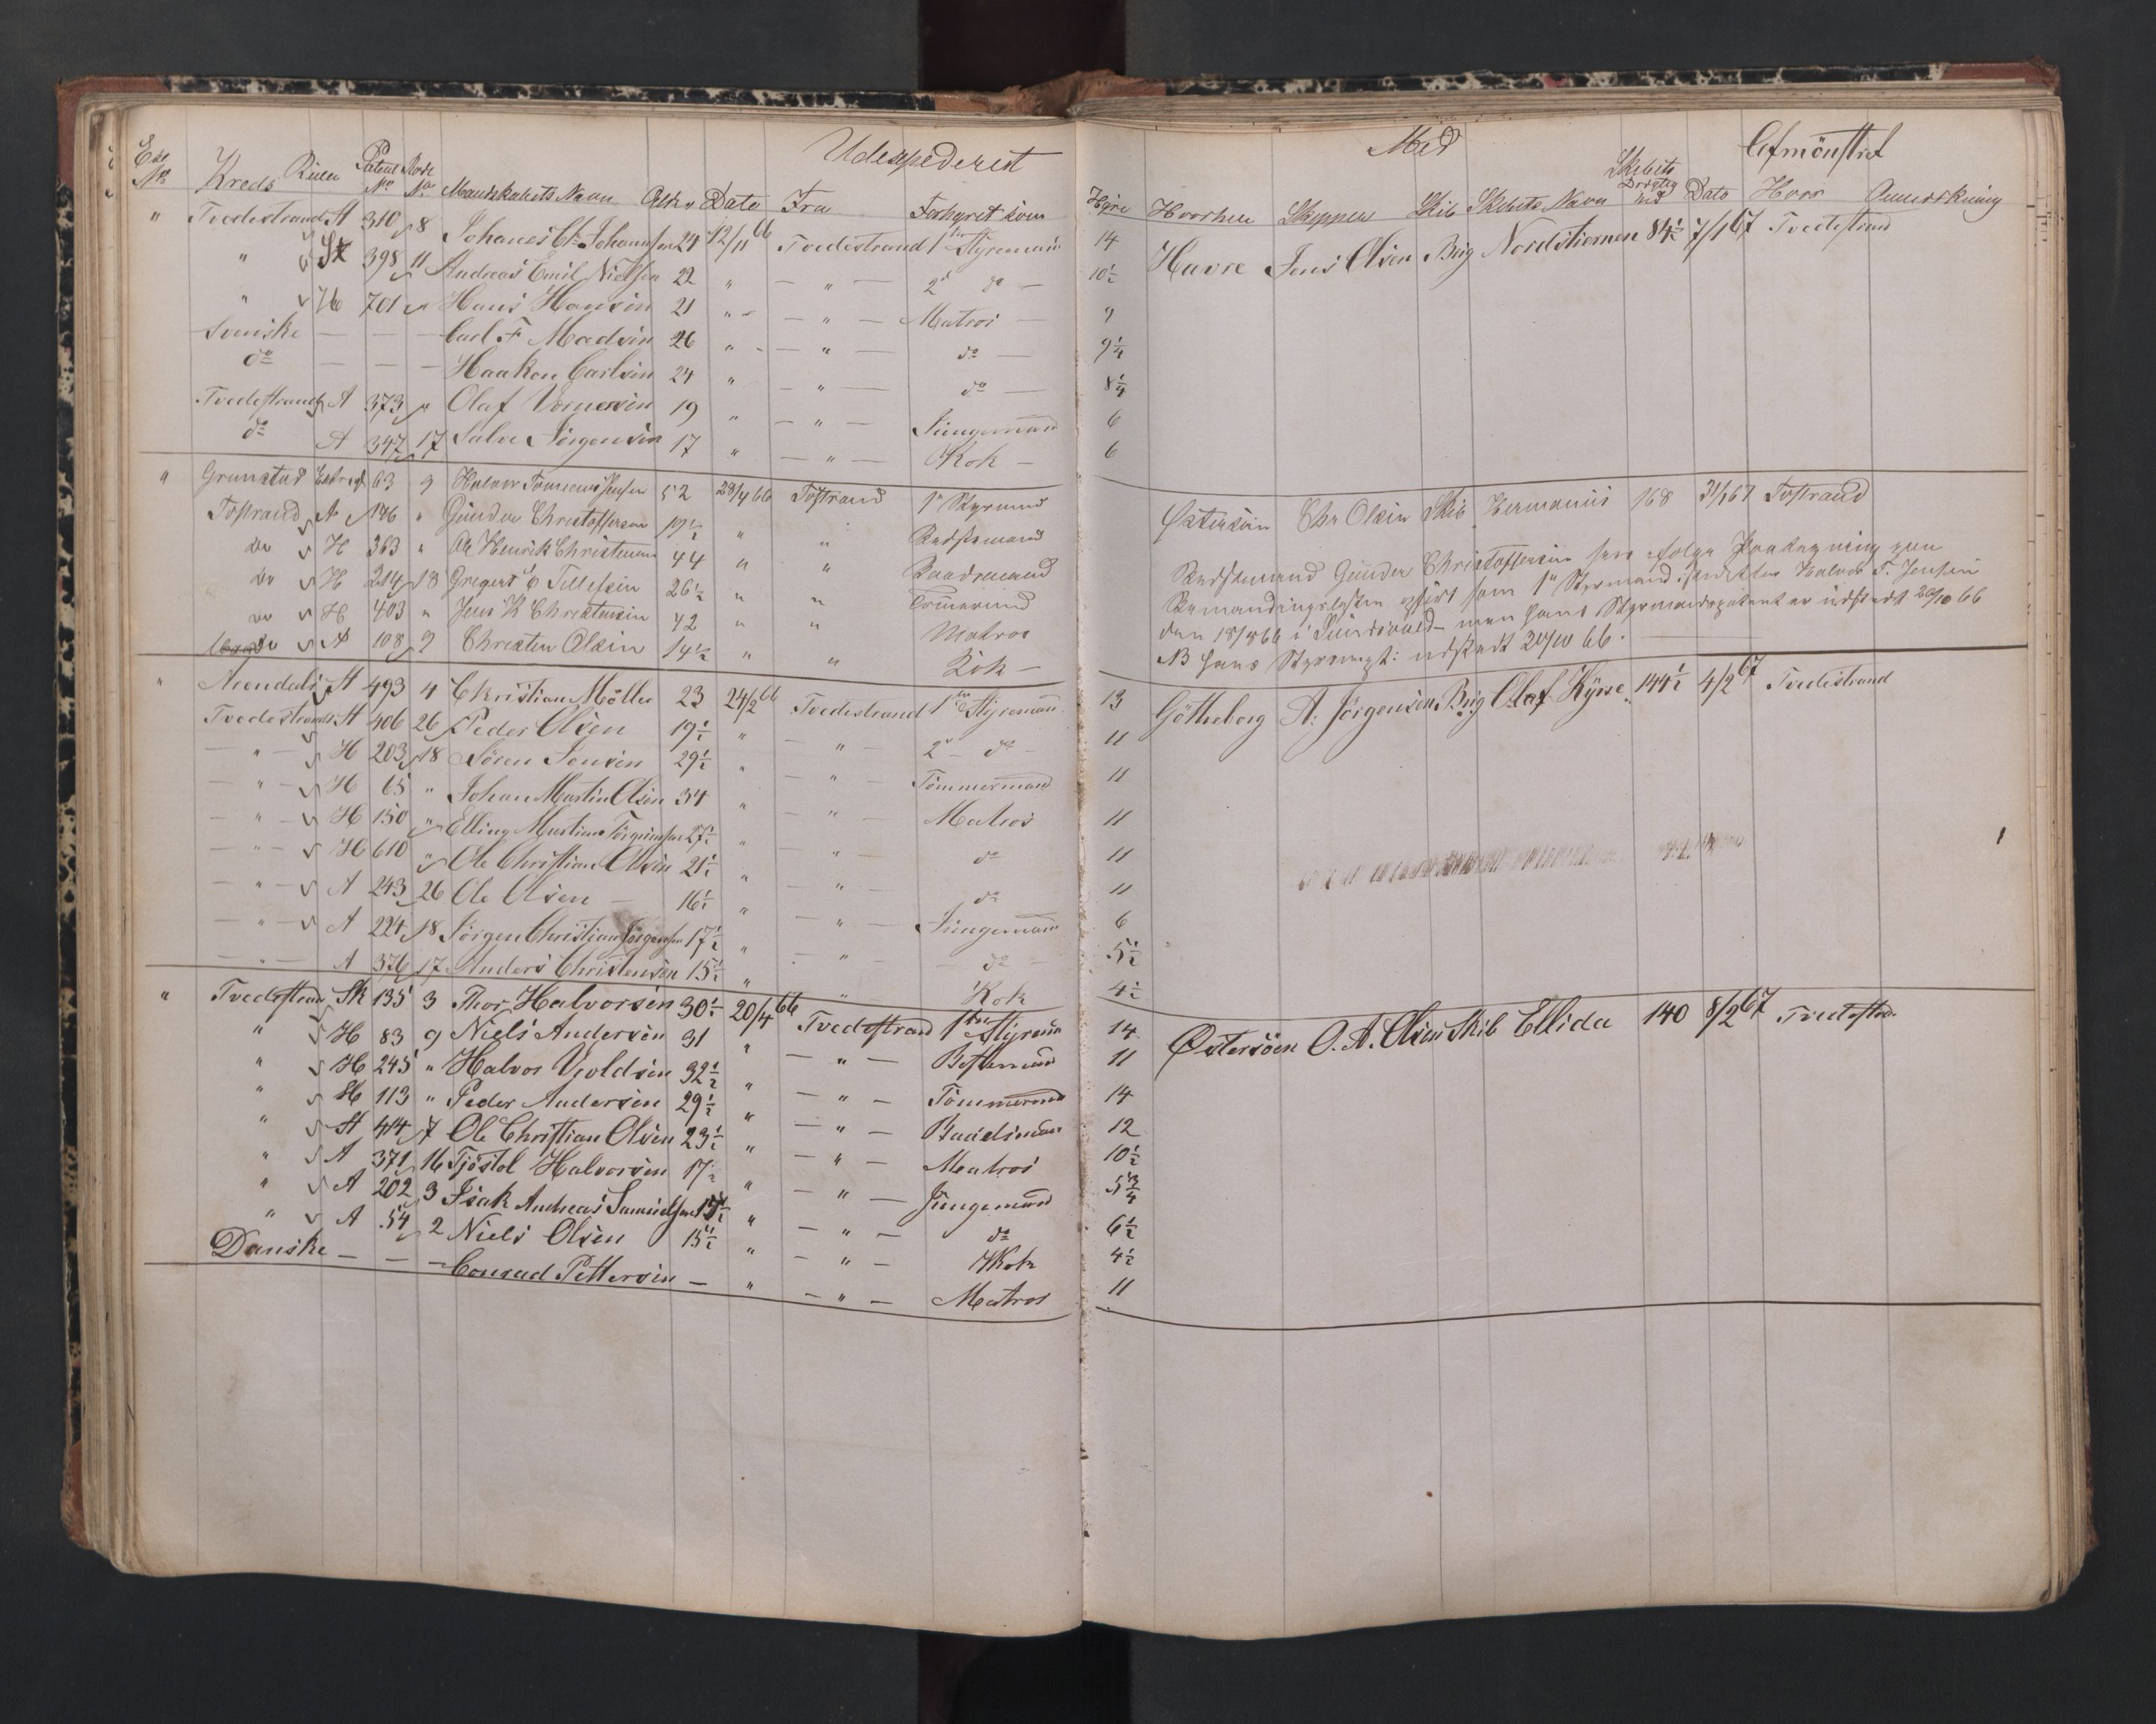 Udexpederet
Exp. No Kreds Rulla Patent No Rode No Mandskabets Navn Alder Dato Fra Forhyret som
" Tvedestrand A 310 8 Johanes Ch. Johannsen 24 12/11 66 Tvedestrand 1ste Styrmann
" 398 11 Andreas Emil Nielsen 22 " — " — 2den do —
" H 701 " Hans Hansen 21 " — " — Matros —
Svenske — — — Carl F Madsen 26 " — " — do —
do — — — Haakon Carlsen 24 " — " — do —
Tvedestrand A 373 " Olaf 19 " — " — Jüngemand
do A 347 17 Salve Jörgensen 17 " — " — Kok —
" Grimstad 63 9 Halvor Jensen 52 28/4 66 Tvstrand 1ste Styrmand
Tvstrand A 146 " Gunder Christoffersen 19½ " " Bedstemand
do H 363 " Ole Henrik Christensen 44 " " Baadsmand
do H 214 18 Gregers Tellefsen 26½ " " Tömmermd
do H 403 " Jens K Christensen 42 " " Matros
do A 108 9 Christen Olsen 14½ " " Kok —
" Arendals A 493 4 Christian Möller 23 24/2 66 Tvedestrand 1ste Styrmann
Tvedestrands A 406 26 Peder Olsen 19½ " — " — 2den — do —
— " — H 203 18 Sören Jensen 29½ " — " — Tömmermand
— " — H 65 " Johan Martin Olsen 34 " — " — Matros
— " — H 150 " Elling Martin 27½ " — " — do
— " — H 610 " Ole Christian Olsen 21½ " — " — do
— " — A 243 26 Ole Olsen — 16½ " — " — Jüngemann
— " — A 224 18 Jörgen Christian Jörgensen 17½ " — " — do —
— " — A 376 17 Anders Christensen 15½ " " Kok
" Tvedestrand Sk 135 3 Thor Halvorsen 30½ 20/4 66 Tvedestrand 1ste Styrmn
" H 83 9 Niels Andersen 31 " — " — Bestemand
" H 245 " Halvor Voldsen 32½ " — " — Tömmermd
" H 113 " Peder Andersen 29½ " — " — Baadsman
" A 414 7 Ole Christian Olsen 23½ " — " — Matros
" A 371 16 Tjöstol Halvorsen 17½ " — " — Jüngemand
" A 202 3 Isak Andreas Samuelsen 15½ " — " — do
" A 54 2 Niels Olsen 15½ " — " — Kok
Danske — — — Conrad Pettersen — " — " — Matros
Med Afmönstret
Hyre Hvorhen Skipper Skib Skibets Navn Skibets Drægtighed Dato Hvor Anmerkning
14 Havre Jens Olsen Brig Nordstiernen 84½ 7/1 67 Tvedestrand
10½
9
9¼
8¼
6
6
Østersöen Chr Olsen Skib Hermanus 168 31/1 67 Tvstrand
Bedstemand Gunder Christoffersen ifølge Paategning paa
Bemandingslisten opført som 1ste Styrmand istedetfor Halvor T. Jensen
den 18/8 66 i Sundsvald — men hans Styrmandspatent er udstedt 20/10 66
NB hans udstedt 20/10 66.
13 Götheborg A. Jörgensen Brig Olaf Kyrre 144½ 4/2 67 Tvedestrand
11
11
11
11
11
6
5½
4½
14 Østersöen O. A. Olsen Skib Ellida 140 8/2 67 Tvedestrd.
11
14
12
10½
5¾
6½
4½
11